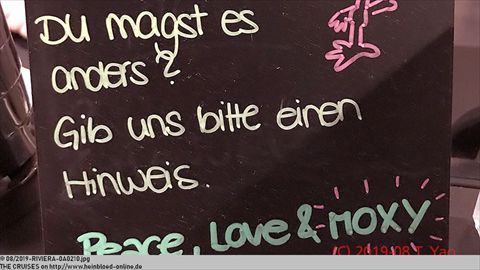 Du magst es
anders?
Gib uns bitte einen
Hinweis.
Peace, Love & MOXY
(C) 2019-08 T. Yao
© 08/2019-RIVIERA-0A0210.jpg
THE CRUISES on http://www.heinbloed-online.de